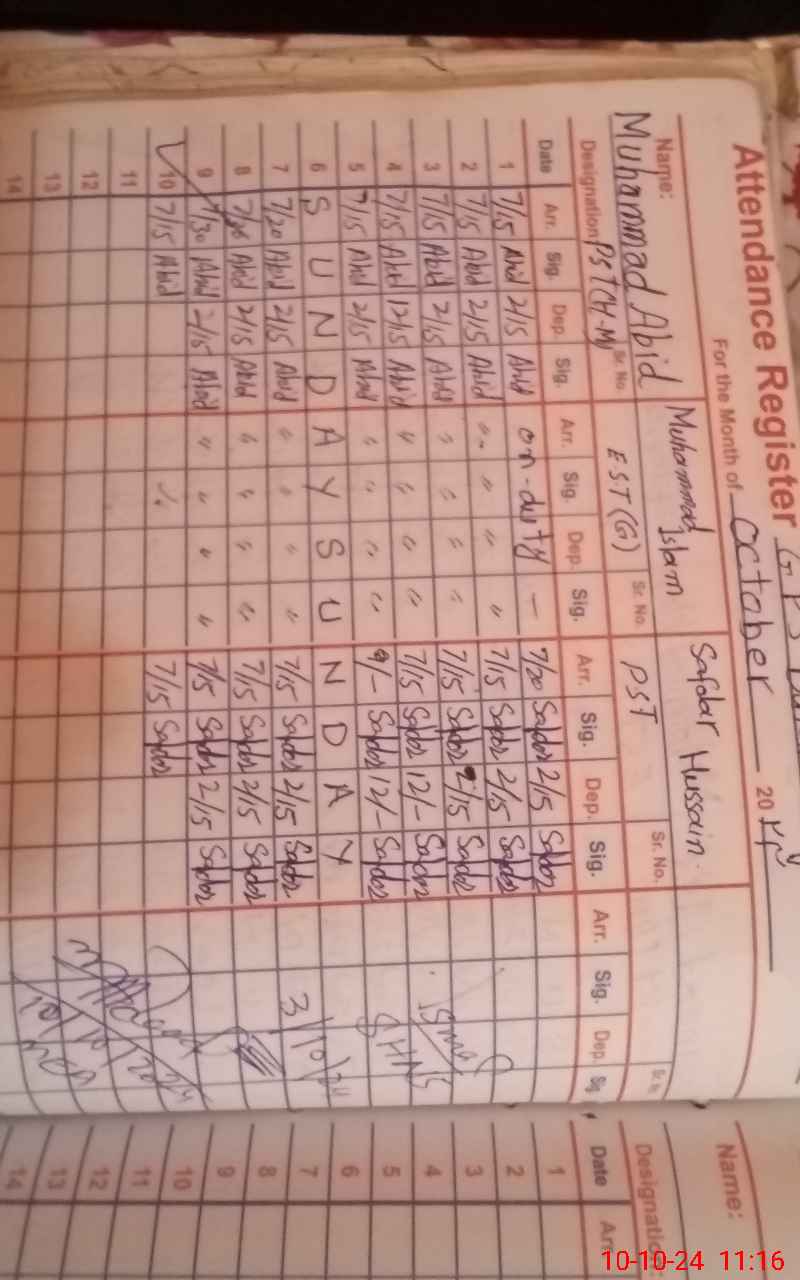 Attendance Register
For the Month of October 20
Name: Muhammad Abid Muhammad Islam Safdar Hussain
Designation PST(H.M) Sr. No. EST(G) Sr. No. PST Sr. No.
Date Arr. Sig. Dep. Sig. Arr. Sig. Dep. Sig. Arr. Sig. Dep. Sig. Arr. Sig. Dep. Sig
1 7/15 Abid 2/15 Abid on-duty — 7/20 Safdar 2/15 Safdar
2 7/15 Abid 2/15 Abid " " " " 7/15 Safdar 2/15 Safdar
3 7/15 Abid 2/15 Abid " " " " 7/15 Safdar 2/15 Safdar
4 7/15 Abid 12/15 Abid " " " " 7/15 Safdar 12/- Safdar
5 7/15 Abid 2/15 Abid " " " " 9/- Safdar 12/- Safdar
6 S U N D A Y S U N D A Y
7 7/20 Abid 2/15 Abid " " " " 7/15 Safdar 2/15 Safdar 3/10/24
8 Abid 2/15 Abid " " " " 7/15 Safdar 2/15 Safdar
9 7/30 Abid 2/15 Abid " " " " 7/15 Safdar 2/15 Safdar
10 7/15 Abid 7/15 Safdar
11
12
13
14
Name:
Designation
Date Arr
1
2
3
4
5
6
7
8
9
10
11
12
13
14
10-10-24 11:16